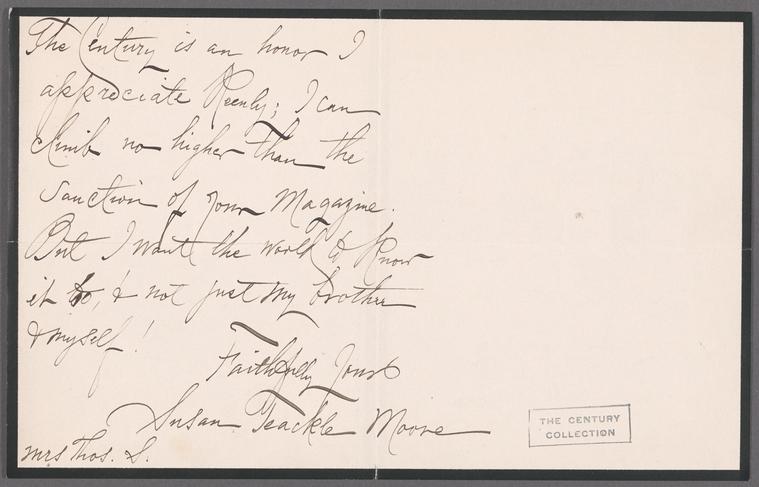 The Century is an honor I
appreciate Keenly; I can
climb no higher than the
Sanction of your Magazine.
But I want the world to Know
it to, & not just my brother
& myself!
Faithfully Yours
Susan Teackle Moore
Mrs Thos. S.
THE CENTURY
COLLECTION